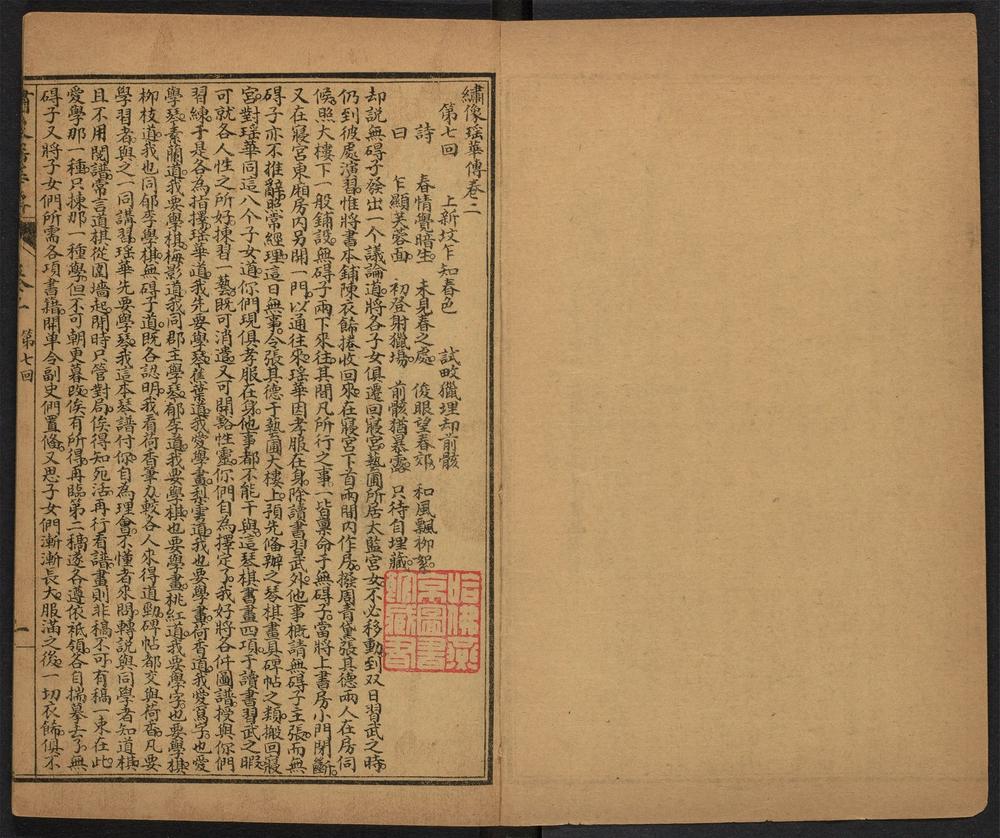 繡像瑶華傳卷二
第七回　上新坟乍知春色　試畋獵埋却前骸
詩　春情覺暗生　未見春之處　俊眼望春郊　和風飄柳絮
曰　乍顯芙蓉面　初登射獵場　前骸猶暴露　只待自埋藏
却説無碍子發出一个議論道將各子女俱遷回寢宫藝圃所居太監宫女不必移動到双日習武之時
仍到彼處演習惟將書本鋪陳衣飾捲收回來在寢宫下首兩間内作房撥周青黛張其德兩人在房伺
候照大樓下一般鋪設無碍子兩下來往其閤凡所行之事一皆稟命于無碍子當將上書房小門閉斷
又在寢宫東廂房内另開一門以通往來瑶華因孝服在身除讀書習武外他事概請無碍子主張而無
碍子亦不推辭照常經理這日無事令張其德于藝圃大樓上預先俻辦之琴棋書畫真碑帖之類搬回寢
宫對瑶華同這八个子女道你們現俱孝服在身他事都不能干與這琴棋書畫四項于讀書習武之暇
可就各人性之所好揀習一藝既可消遣又可開豁性靈你們自為擇定了我好將各件圖譜授與你們
習練于是各為指擇瑶華道我先要學琴蕉葉道我愛學畫梨雲道我也要學畫荷香道我愛寫字也愛
學琴素蘭道我要學棋梅影道我同郡主學琴郁李道我要學棋也要學畫桃紅道我要學字也要學棋
柳枝道我也同郁李學棋無碍子道既各認明我看荷香筆力較各人來得道勁碑帖都交與荷香凡要
學習者與之一同講習瑶華先要學琴我這本琴譜付你自為理會不懂者來問轉説與同學者知道棋
且不用閲譜常言道棋從圍墻起開時只管對局俟得知死活再行看譜畫則非稿不可有稿一束在此
愛學那一種只揀那一種學但不可朝更暮改俟有所得再臨第二稿遂各遵依祗領各自揣摹去了無
碍子又將子女們所需各項書籍開单令副史們置俻又思子女們漸漸長大服滿之後一切衣飾俱不
第七回
一
哈佛燕
京圖書
館藏書